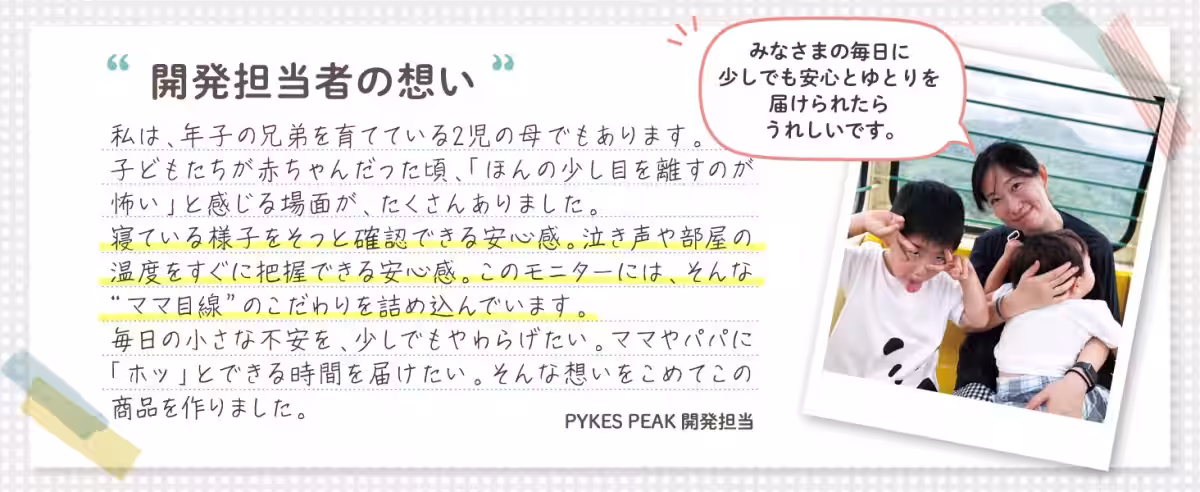 “ 開発担当者の想い ”
私は、年子の兄弟を育てている2児の母でもあります。
子どもたちが赤ちゃんだった頃、「ほんの少し目を離すのが
怖い」と感じる場面が、たくさんありました。
寝ている様子をそっと確認できる安心感。泣き声や部屋の
温度をすぐに把握できる安心感。このモニターには、そんな
“ママ目線”のこだわりを詰め込んでいます。
毎日の小さな不安を、少しでもやわらげたい。ママやパパに
「ホッ」とできる時間を届けたい。そんな想いをこめてこの
商品を作りました。
PYKES PEAK 開発担当
みなさまの毎日に
少しでも安心とゆとりを
届けられたら
うれしいです。